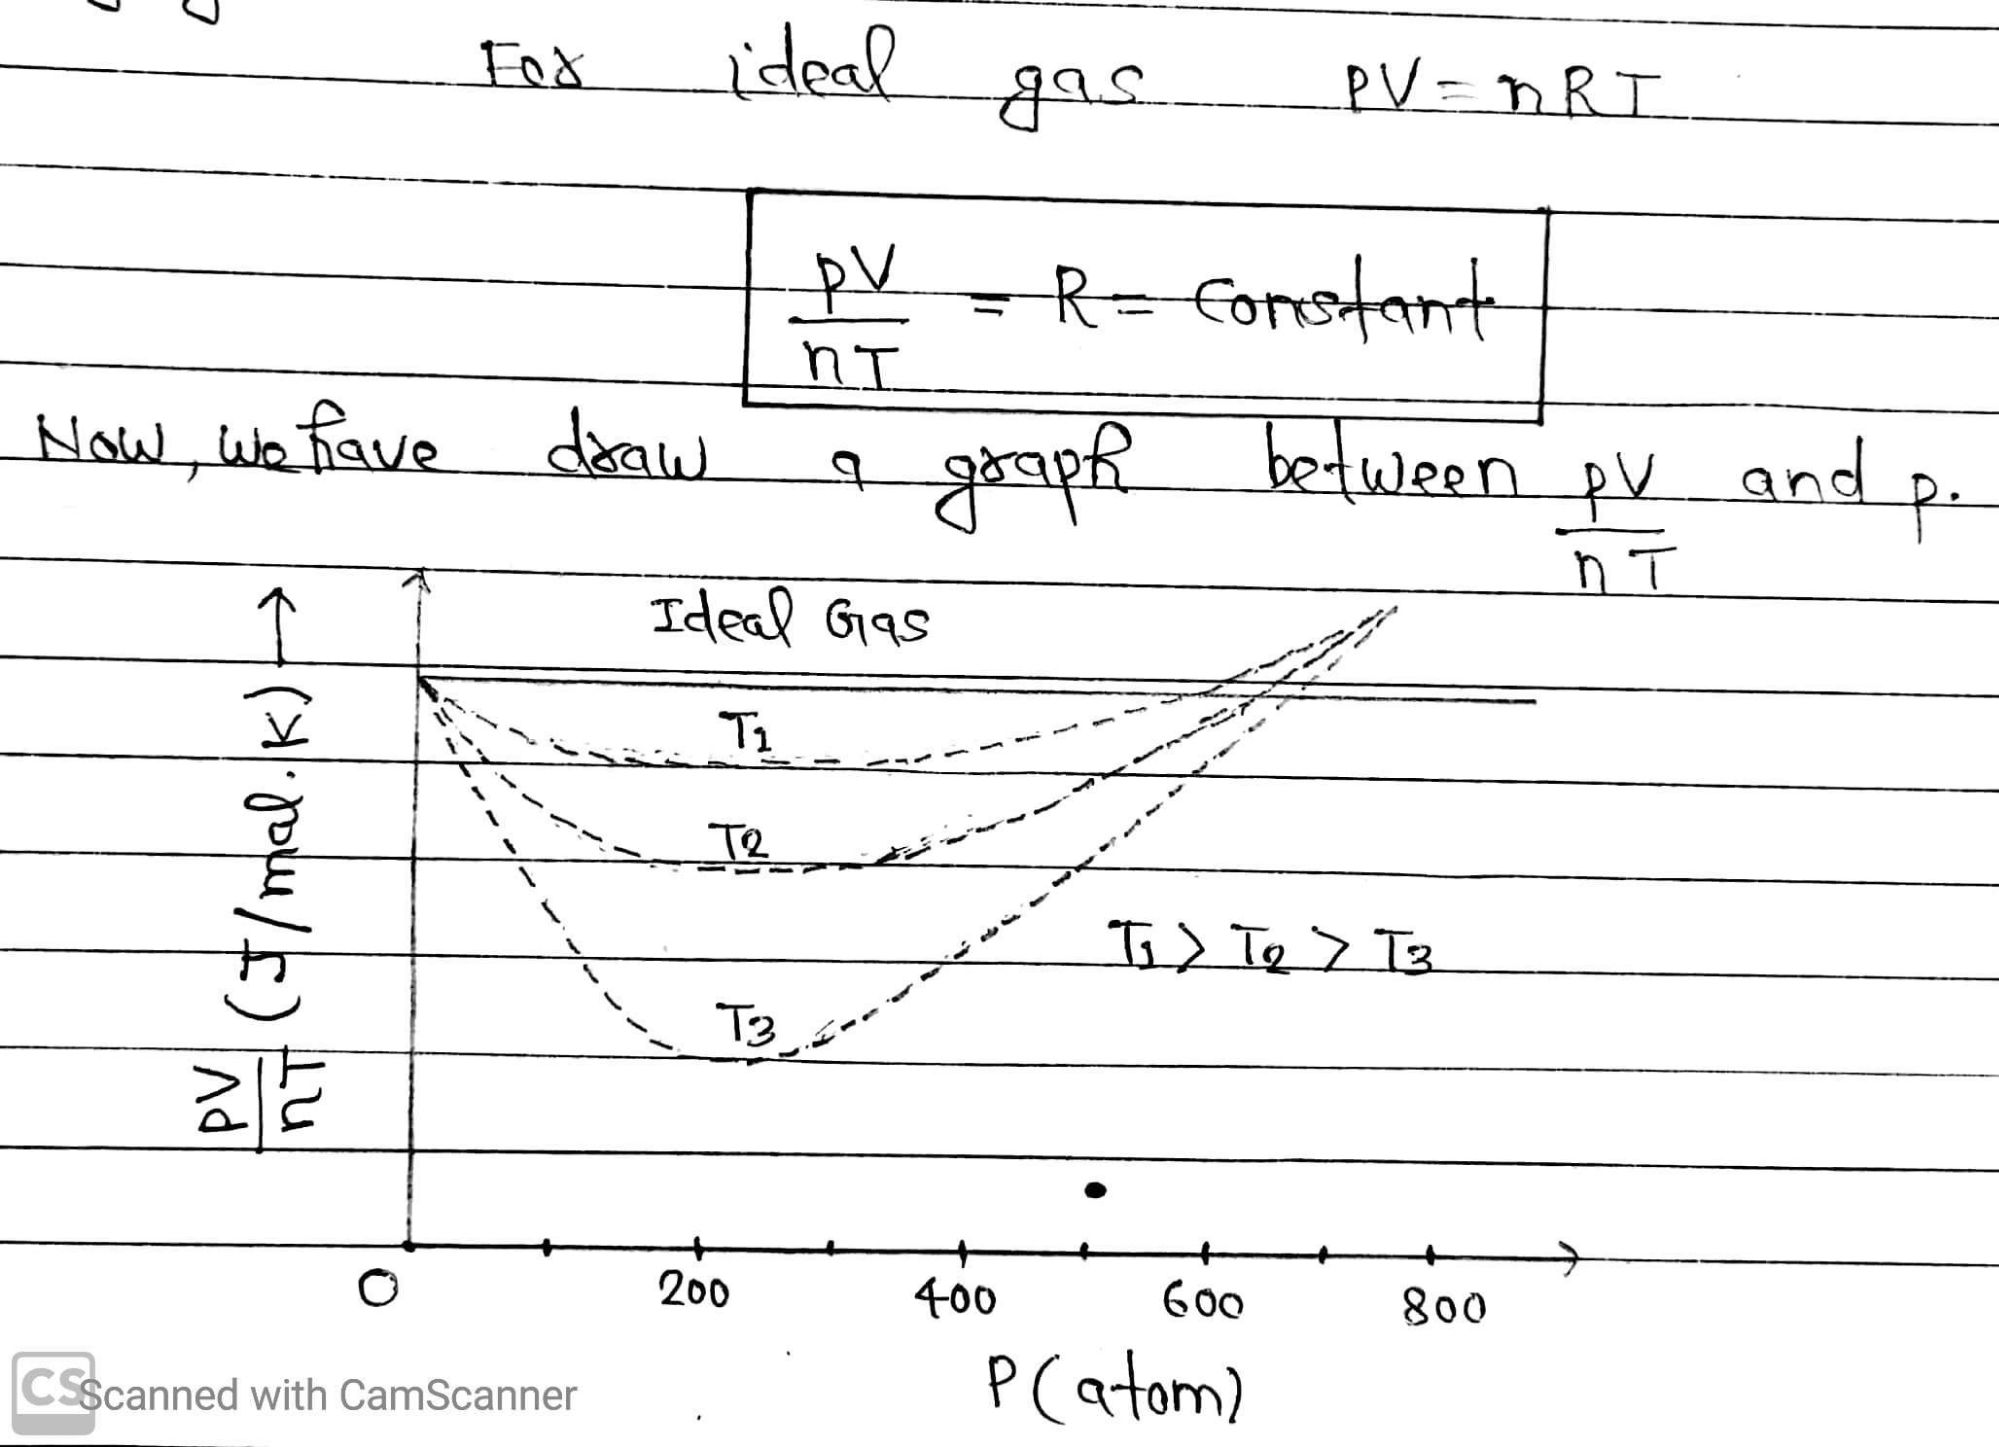 For ideal gas PV = nRT
pV/nT = R = Constant
Now, we have draw a graph between pV/nT and p.
Ideal Gas
T1
T2
T1 > T2 > T3
T3
pV/nT (J/mol.K) →
0 200 400 600 800
P(atom)
CS Scanned with CamScanner